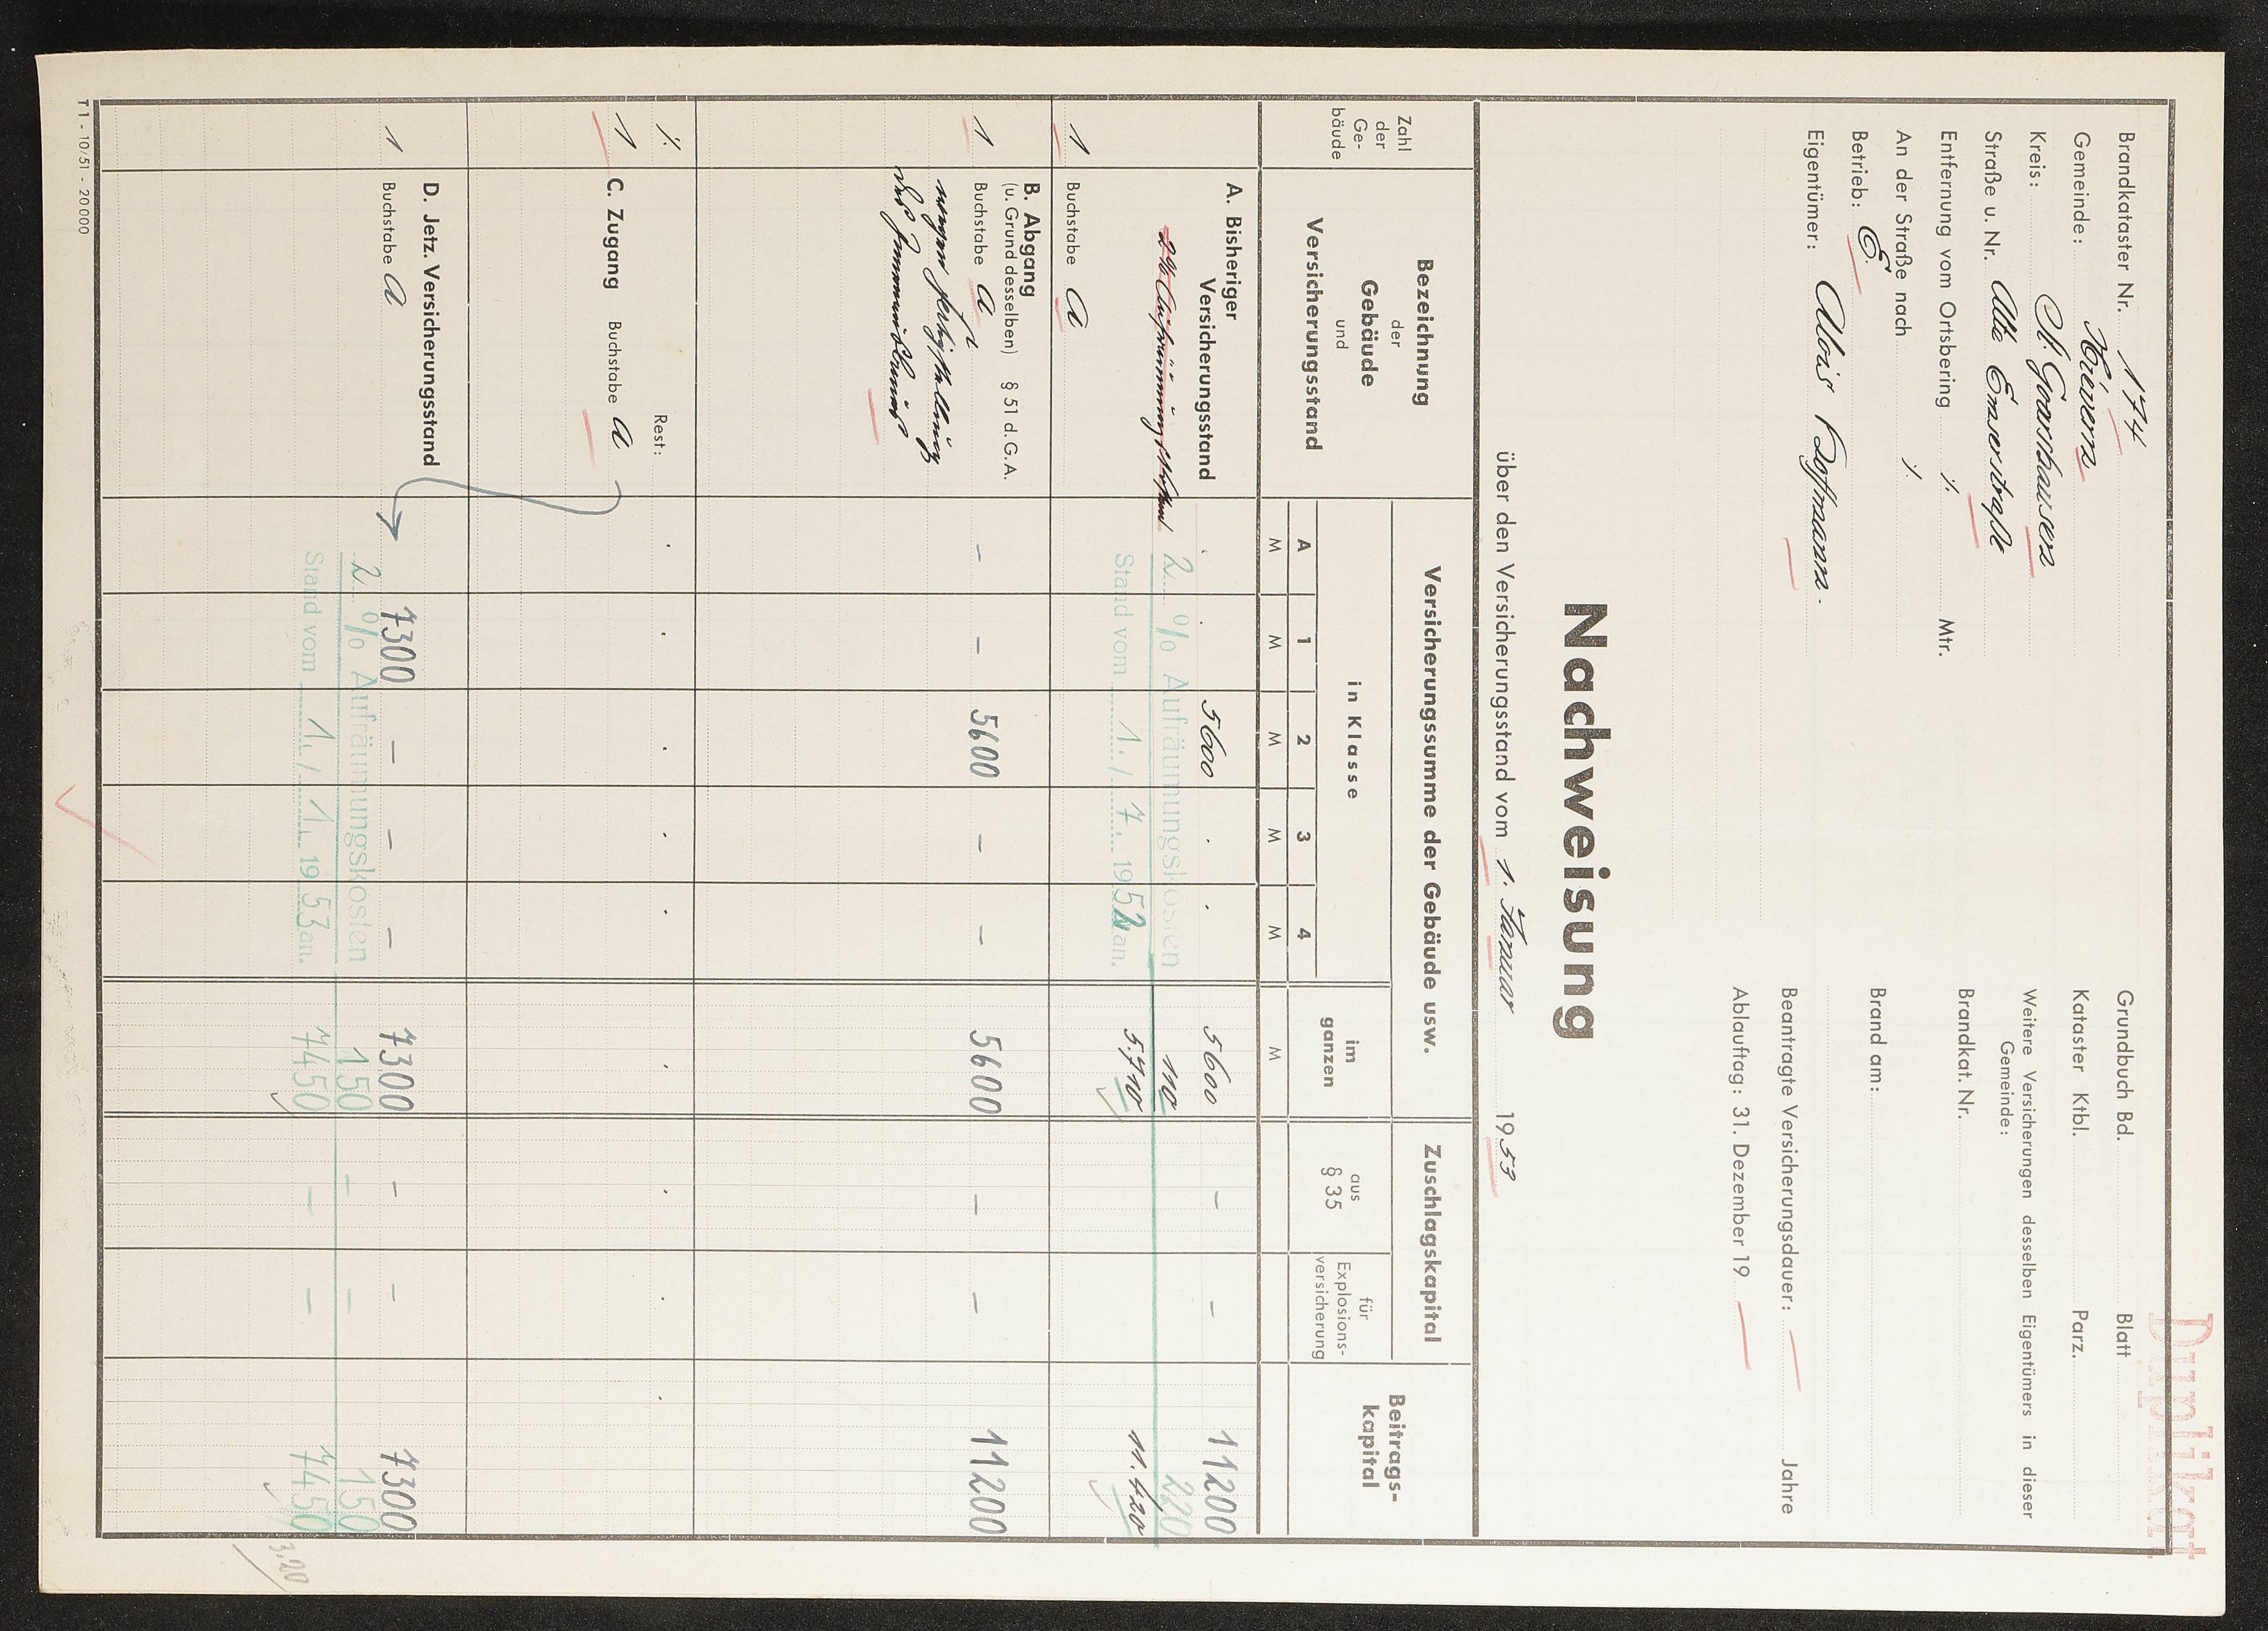 Duplikat
Brandkataster Nr. 174
Grundbuch Bd. Blatt
Gemeinde: Kövern
Kataster Ktbl. Parz.
Kreis: St. Goarshausen
Weitere Versicherungen desselben Eigentümers in dieser
Gemeinde:
Straße u. Nr. Alte Emserstraße
Brandkat. Nr.
Entfernung vom Ortsbering ./. Mtr.
An der Straße nach ./.
Brand am:
Betrieb: E.
Eigentümer: Alois Hoffmann.
Beantragte Versicherungsdauer: Jahre
Ablauftag: 31. Dezember 19
Nachweisung
über den Versicherungsstand vom 1. Januar 1953
Zahl der Ge-bäude
Bezeichnung der Gebäude und Versicherungsstand
Versicherungssumme der Gebäude usw.
in Klasse
A 1 2 3 4
im ganzen
M M M M M M
Zuschlagskapital
aus § 35
für Explosions-versicherung
Beitrags-kapital
A. Bisheriger
Versicherungsstand 5600 5600 – – 11200
2% Aufräumungskosten
2 % Aufräumungskosten 110 220
Stand vom 1. / 7. 1952 an. 5.710 11.420
1 Buchstabe A
B. Abgang
(u. Grund desselben) § 51 d. G. A.
1 Buchstabe A – – 5600 – – 5600 – – 11200
wegen Fertigstellung
des
./. Rest:
1 C. Zugang Buchstabe A
D. Jetz. Versicherungsstand
1 Buchstabe A 7300 – – – 7300 – – 7300
2 % Aufräumungskosten 150 – – 150
Stand vom 1. / 1. 1953 an. 7450 – – 7450
3,20
T 1 - 10/51 - 20000